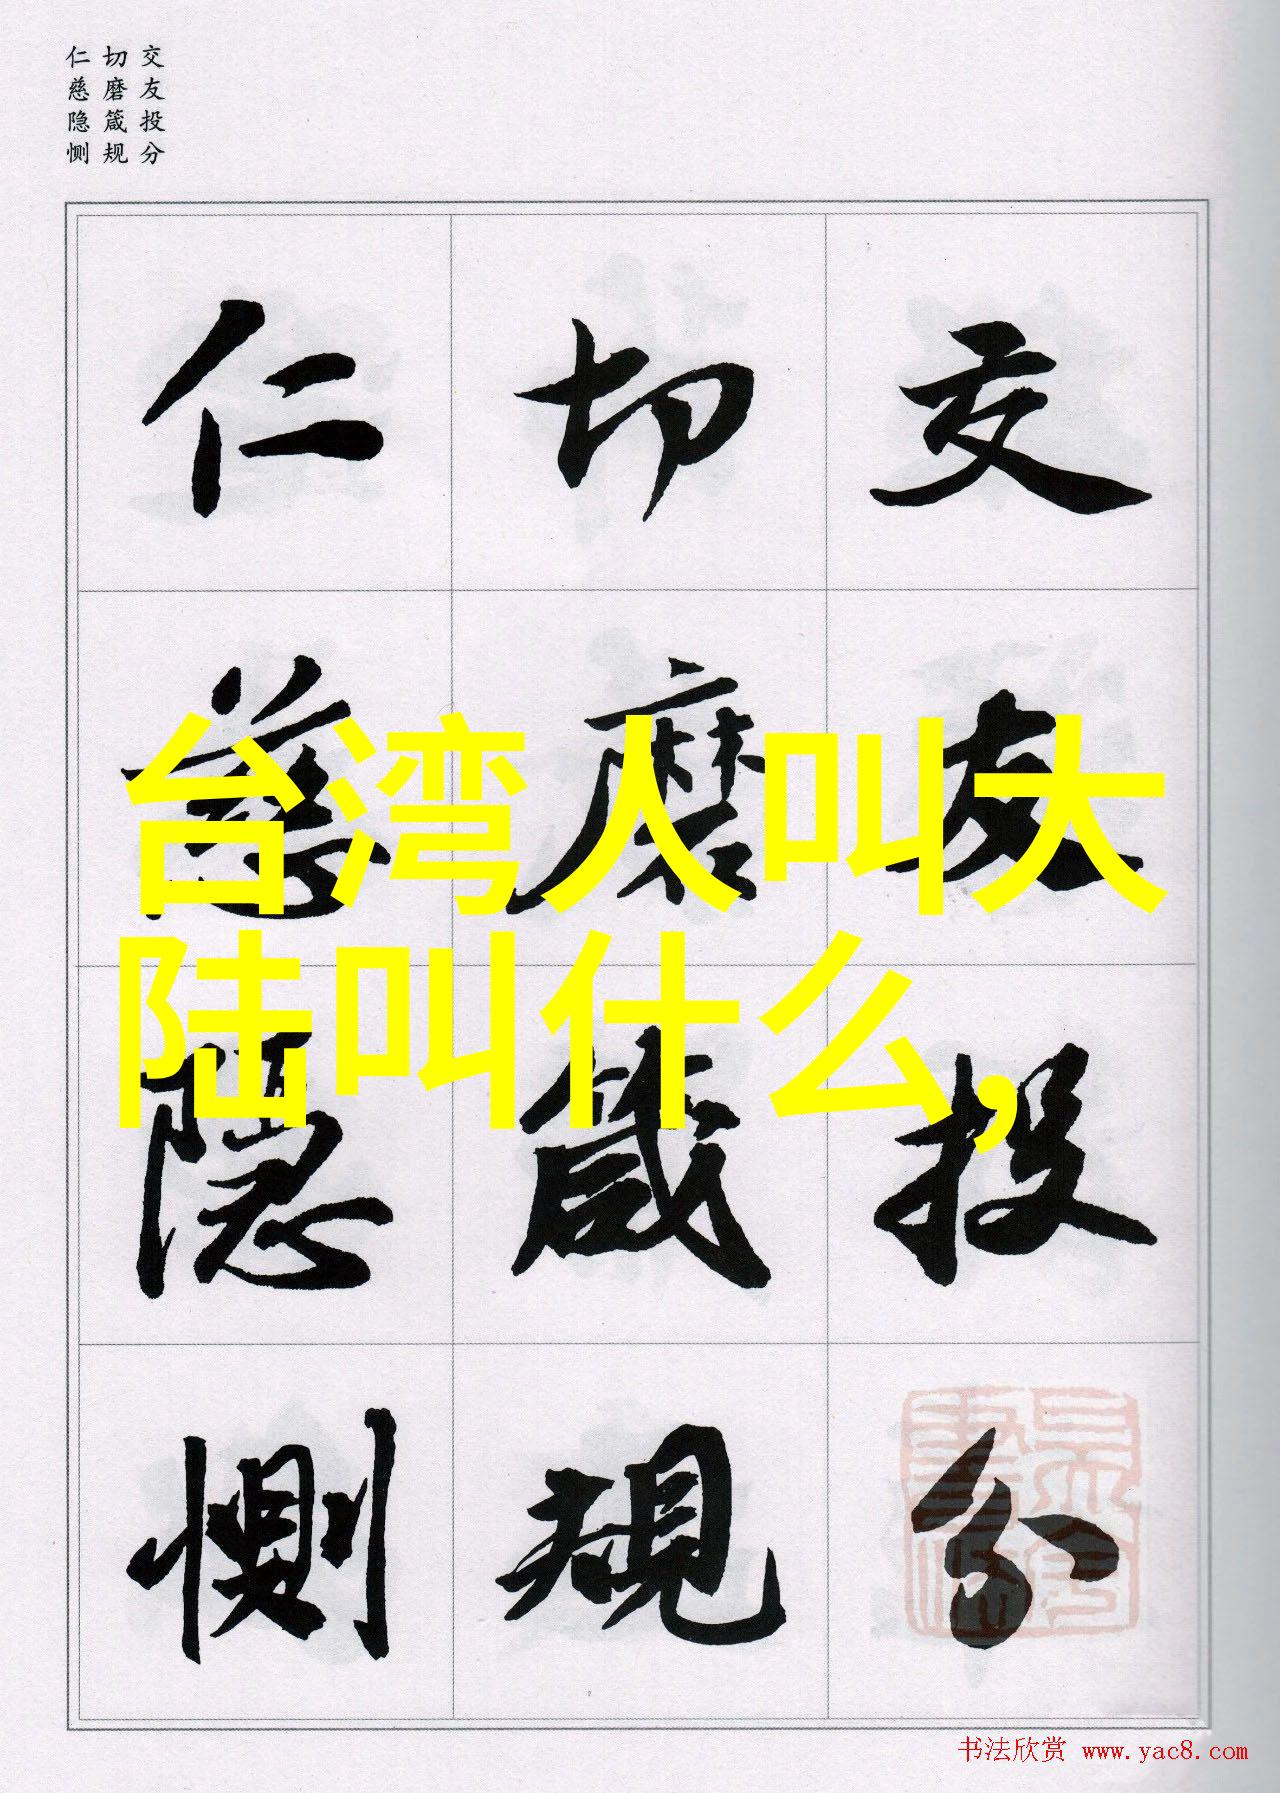 交友投分
切磨箴规
仁慈隐恻
交友投分
切磨箴規
仁慈隐恻
台湾人叫大
陆叫什么,
书法欣赏 www.yac8.com